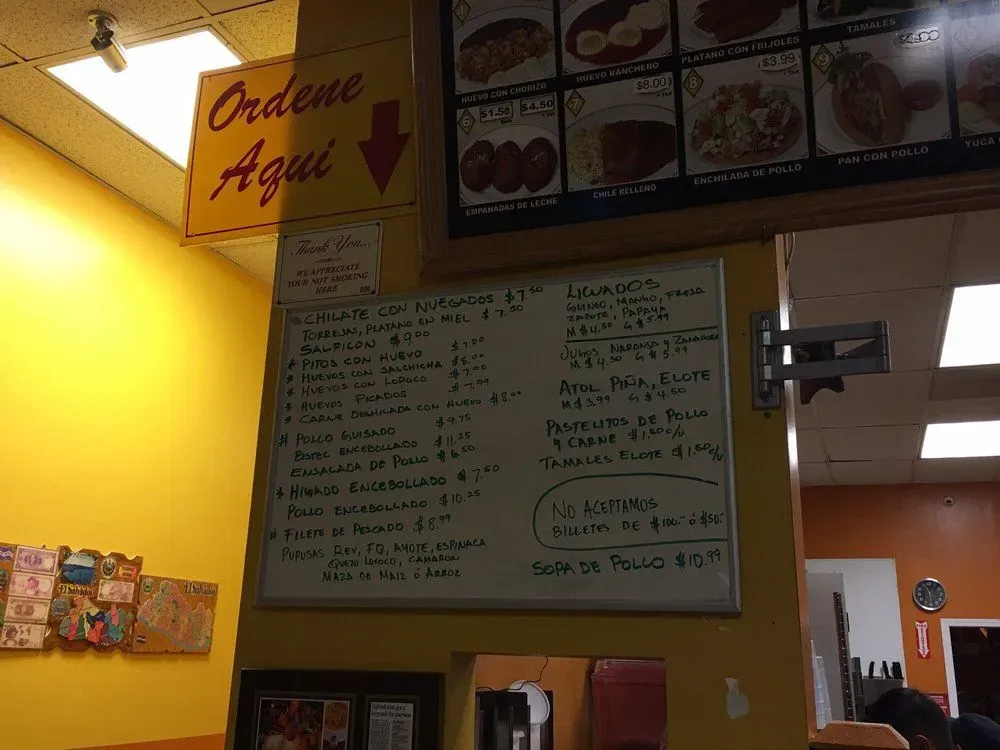 Ordene
Aqui
HUEVO CON CHORIZO
HUEVO RANCHERO
PLATANO CON FRIJOLES
TAMALES
6
$1.50
$4.50
EMPANADAS DE LECHE
7
$8.00
+ TAX
CHILE RELLENO
8
$3.99
+ TAX
ENCHILADA DE POLLO
9
PAN CON POLLO
YUCA
Thank You...
WE APPRECIATE
YOUR NOT SMOKING
HERE
CHILATE CON NUEGADOS $7.50
TORREJAS, PLATANO EN MIEL $7.50
SALPICON $9.00
* PITOS CON HUEVO $7.00
* HUEVOS CON SALCHICHA $8.00
* HUEVOS CON LOROCO $7.00
* HUEVOS PICADOS $7.99
* CARNE DESHILADA CON HUEVO $8.00
* POLLO GUISADO $9.75
BISTEC ENCEBOLLADO $11.25
ENSALADA DE POLLO $6.50
* HIGADO ENCEBOLLADO $7.50
POLLO ENCEBOLLADO $10.25
* FILETE DE PESCADO $8.99
PUPUSAS REV, FQ, AYOTE, ESPINACA
QUEZO LOROCO, CAMARON
MAZA DE MAIZ ó ARROZ
LICUADOS
GUINEO, MANGO, FRESA
ZAPOTE, PAPAYA
M $4.50 G $5.99
JUGOS NARANJA Y ZANAHORIA
M $4.50 G $5.99
ATOL PIÑA, ELOTE
M $3.99 G $4.50
PASTELITOS DE POLLO
Y CARNE $1.50 c/u
TAMALES ELOTE $1.50 c/u
NO ACEPTAMOS
BILLETES DE $100.- ó $50.-
SOPA DE POLLO $10.99
El Salvador
El Salvador